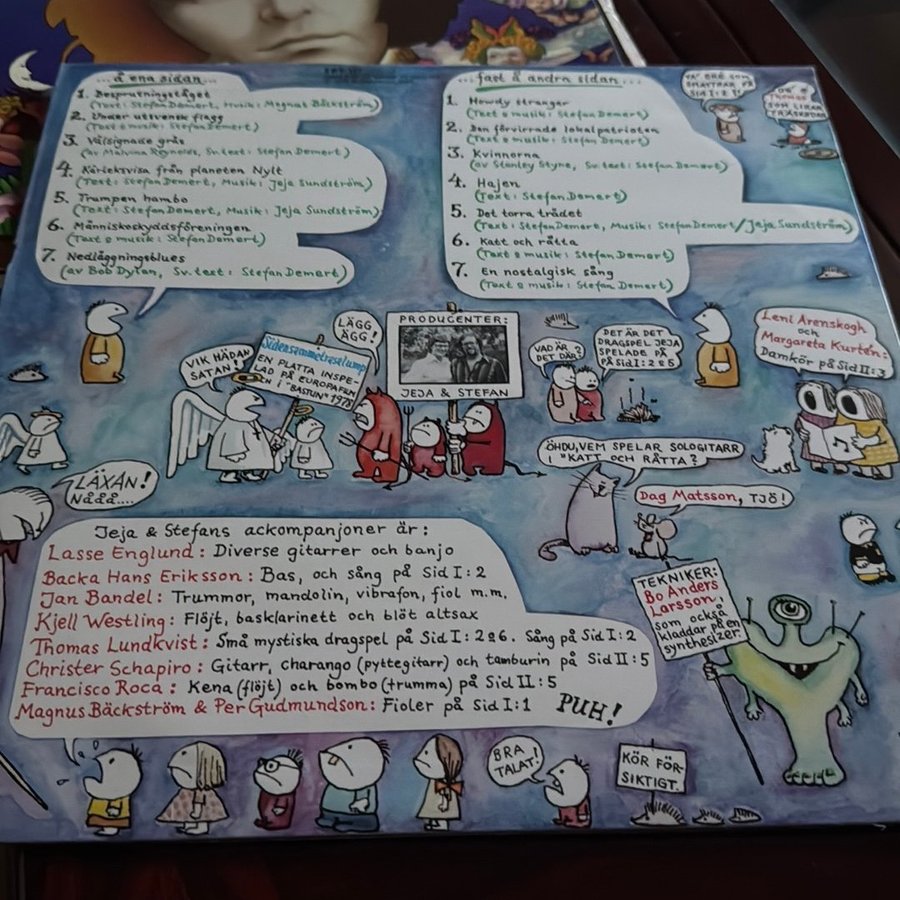 ...å ena sidan...
1. Besprutningståget
(Text: Stefan Demert, Musik: Magnus Bäckström)
2. Under utsvensk flagg
(Text & musik: Stefan Demert)
3. Välsignade gräs
(av Malvina Reynolds, Sv. text: Stefan Demert)
4. Kärleksvisa från planeten Nylt
(Text: Stefan Demert, Musik: Jeja Sundström)
5. Trumpen hambo
(Text: Stefan Demert, Musik: Jeja Sundström)
6. Människoskyddsföreningen
(Text & musik: Stefan Demert)
7. Nedläggningsblues
(av Bob Dylan, Sv. text: Stefan Demert)
...fast å andra sidan...
1. Howdy stranger
(Text & musik: Stefan Demert)
2. Den förvirrade lokalpatrioten
(Text & musik: Stefan Demert)
3. Kvinnorna
(av Stanley Styne, Sv. text: Stefan Demert)
4. Hajen
(Text: Stefan Demert)
5. Det torra trädet
(Text: Stefan Demert, Musik: Stefan Demert/Jeja Sundström)
6. Katt och råtta
(Text & musik: Stefan Demert)
7. En nostalgisk sång
(Text & musik: Stefan Demert)
SOM
SMATTRAR PÅ
SID I:2?
THOMAS
SOM LIRAR
TRÄSKEDAR
VIK HÄDAN
SATAN!
Sidensammetraselump
EN PLATTA INSPE-
LAD PÅ EUROPAFILM
EN I "BASTUN" 1978
LÄGG
ÄGG!
PRODUCENTER:
JEJA & STEFAN
VAD ÄR
DET DÄR?
DET ÄR DET
DRAGSPEL JEJA
SPELADE PÅ
PÅ Sid I: 2 & 5
Leni Arenskogh
och
Margareta Kurtén:
Damkör på Sid II:3
LÄXAN!
NÅÅÅ....
ÖHDU, VEM SPELAR SOLOGITARR
I "KATT OCH RÅTTA?
Dag Matsson, TJÖ!
Jeja & Stefans ackompanjoner är:
Lasse Englund: Diverse gitarrer och banjo
Backa Hans Eriksson: Bas, och sång på Sid I:2
Jan Bandel: Trummor, mandolin, vibrafon, fiol m.m.
Kjell Westling: Flöjt, basklarinett och blöt altsax
Thomas Lundkvist: Små mystiska dragspel på Sid I:2&6. Sång på Sid I:2
Christer Schapiro: Gitarr, charango (pyttegitarr) och tamburin på Sid II:5
Francisco Roca: Kena (flöjt) och bombo (trumma) på Sid II:5
Magnus Bäckström & Per Gudmundson: Fioler på Sid I:1
PUH!
TEKNIKER:
Bo Anders
Larsson,
som också
kladdar på en
synthesizer.
BRA
TALAT!
KÖR FÖR-
SIKTIGT.